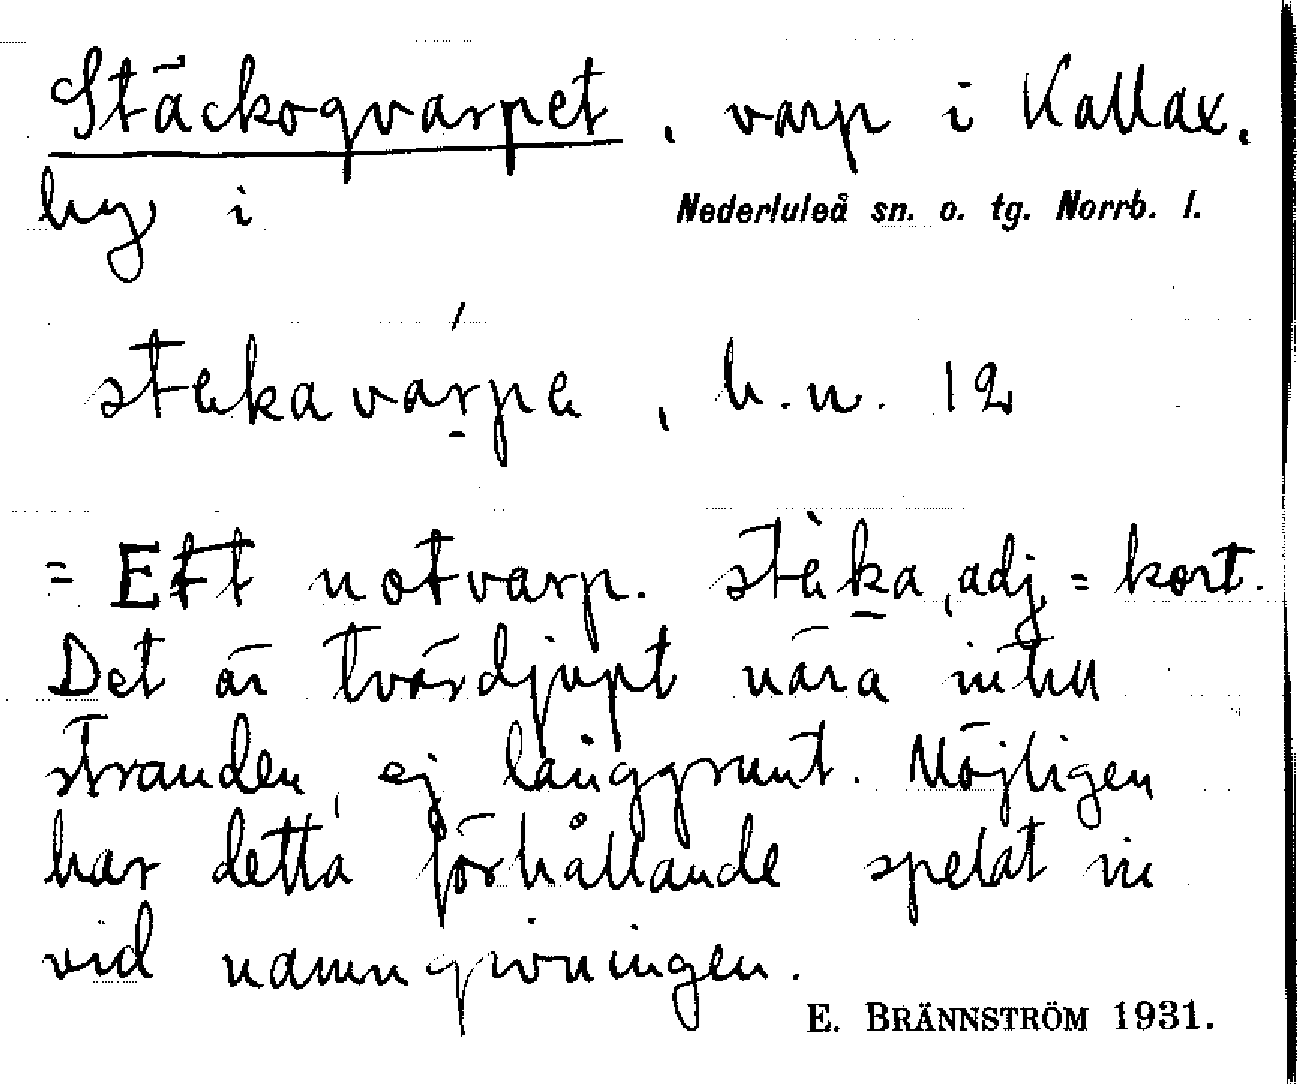 Stäckogvarpet, varp i Kallax,
by i Nederluleå sn. o. tg. Norrb. l.
stekavárpe, h.n. 12
= Ett notvarp. stèka, adj = kort.
Det är tvärdjupt nära intill
stranden, ej långgrunt. Möjligen
har detta förhållande spelat in
vid namngivningen.
E. BRÄNNSTRÖM 1931.